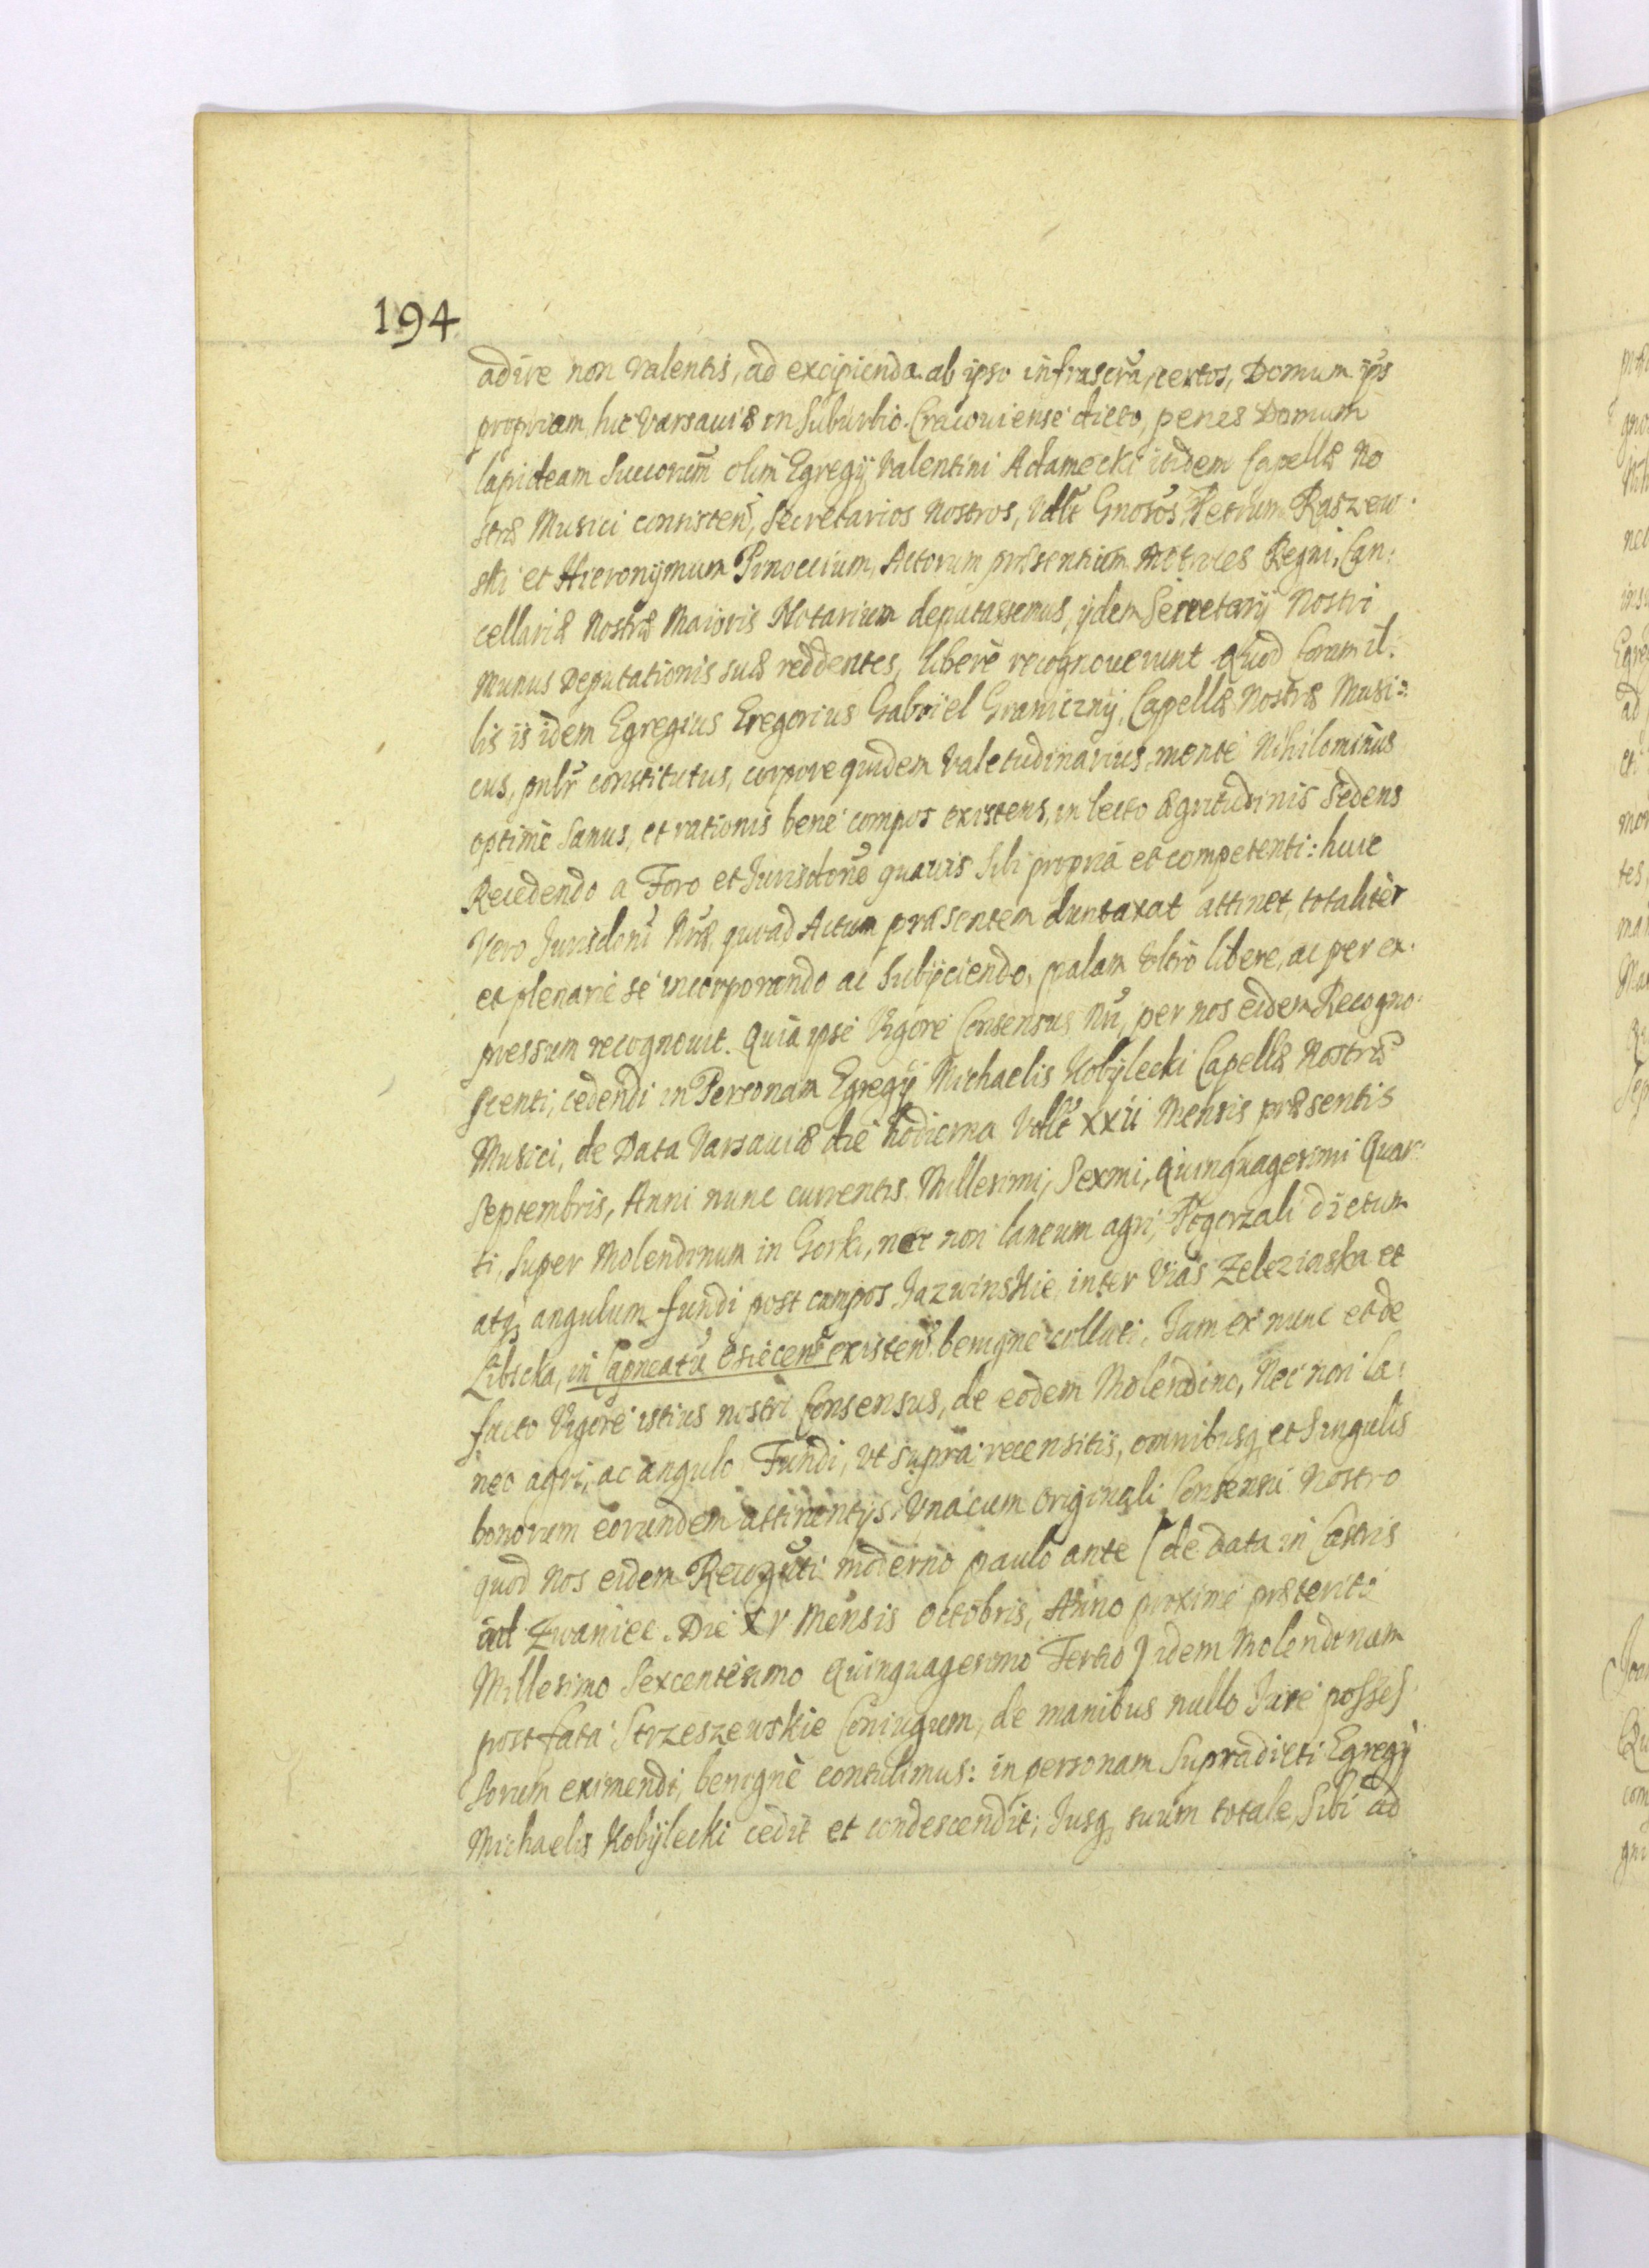 194
adire non valentis, ad excipienda ab ipso infrascrã, certos, Domum ip̃s
propriam hic Varsaviæ in Suburbio Cracoviense dicto, penes Domum
lapideam Succorum̃ olim Egregÿ Valentini Adamecki itidem Capellæ No
stræ Musici consisten̄, Secretarios Nostros, Vdlt̃ Gnosos Petrum Raszew
ski et Hieronÿmum Pinoccium, Actorum præsentium Metrices Regni, Can:
cellariæ Nostræ Maioris Notarium deputassemus, ijdem Secretarÿ Nostri
Munus Deputationis suæ reddentes, liberè recognoverunt Quod Coram il:
lis is idem Egregius Gregorius Gabrÿel Granicznÿ, Capellæ Nostræ Musi=
cus, pnlr̃ constitutus, corpore quidem Valetudinarius, mente Nihilominus
optimè Sanus, et rationis bene compos existens, in lecto ægritudinis Sedens
Recedendo a Foro et Jurisdone quavis Sibi propria et competenti: huic
Vero Jurisdoni Nr̃æ, quoad Actum præsentem duntaxat attinet, totalitèr
et plenarie se incorporando ac Subÿciendo, palam Vltrò libere, ac per ex:
pressum recognovit. Quia ipse Vigore Consensus Nr̃i, per nos eidem Recogno:
scenti, cedendi in Personam Egregÿ Michaelis Kobÿlecki Capellæ Nostræ
Musici, de Data Varsaviæ die hodierna Vdlt̃ XXII Mensis præsentis
Septembris, Anni nunc currentis Millesimi, Sexmi, Quinquagesimi Quar:
ti, Super Molendinum in Gorki, nec non laneum agri, Pogorzali dictum
atq angulum fundi post campos Jazwinskie inter Vias Zelezinska et
Libicka, in Capneatũ Csiecen̄ existen̄ benigne collati. Jam ex nunc et de
facto Vigore istius nostri Consensus, de eodem Molendino, Nec non la:
neo agri, ac angulo Fundi, vt supra recensitis, omnibusq et Singulis
bonorum eorundem attinentÿs, Vnacum originali Consensu Nostro
quod Nos eidem Recogn̄ti moderno paulo ante (de Data in Castris
ad Zwaniec. Die XV Mensis Octobris, Anno proxime præterito
Millesimo Sexcentesimo Quinquagesimo Tertio) idem Molendinum
post fata Strzeszewskie Coniugum, de manibus nullo Jure posses
sorum eximendi, benignè contulimus: in personam Supradicti Egregÿ
Michaelis Kobÿlecki cedit et condescendit; Jusq suum totale, Sibi ad